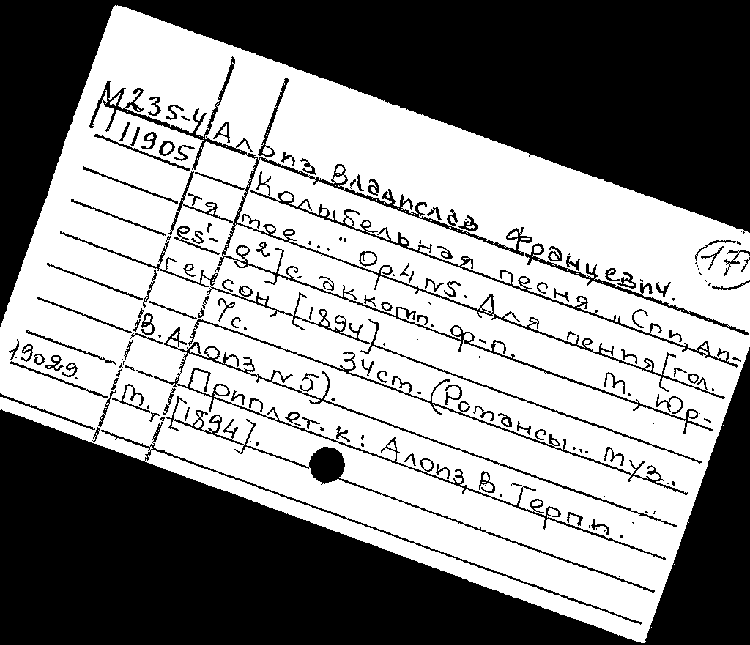 М235-4
111905
Алоиз, Владислав Францевич.
17
Колыбельная песня. „Спи, ди-
тя мое..." Ор.4, №5. Для пения [гол.
es¹-g²] с аккомп. ф-п. М., Юр-
генсон, [1894].
7с. 34см. (Романсы... муз.
В. Алоиз, №5).
Приплет. к: Алоиз, В. Терпи..
М., [1894].
19029